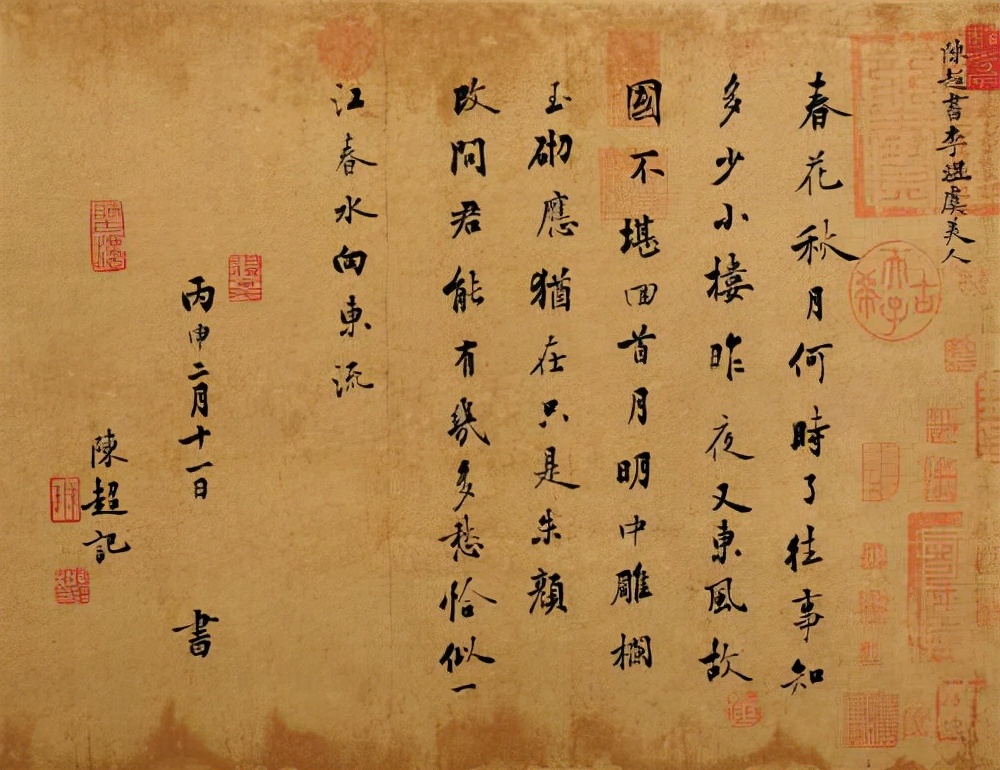 陳超書李煜虞美人
春花秋月何時了往事知
多少小樓昨夜又東風故
國不堪回首月明中雕欄
玉砌應猶在只是朱顏
改問君能有幾多愁恰似一
江春水向東流
丙申二月十一日 書
陳超記
古希天子